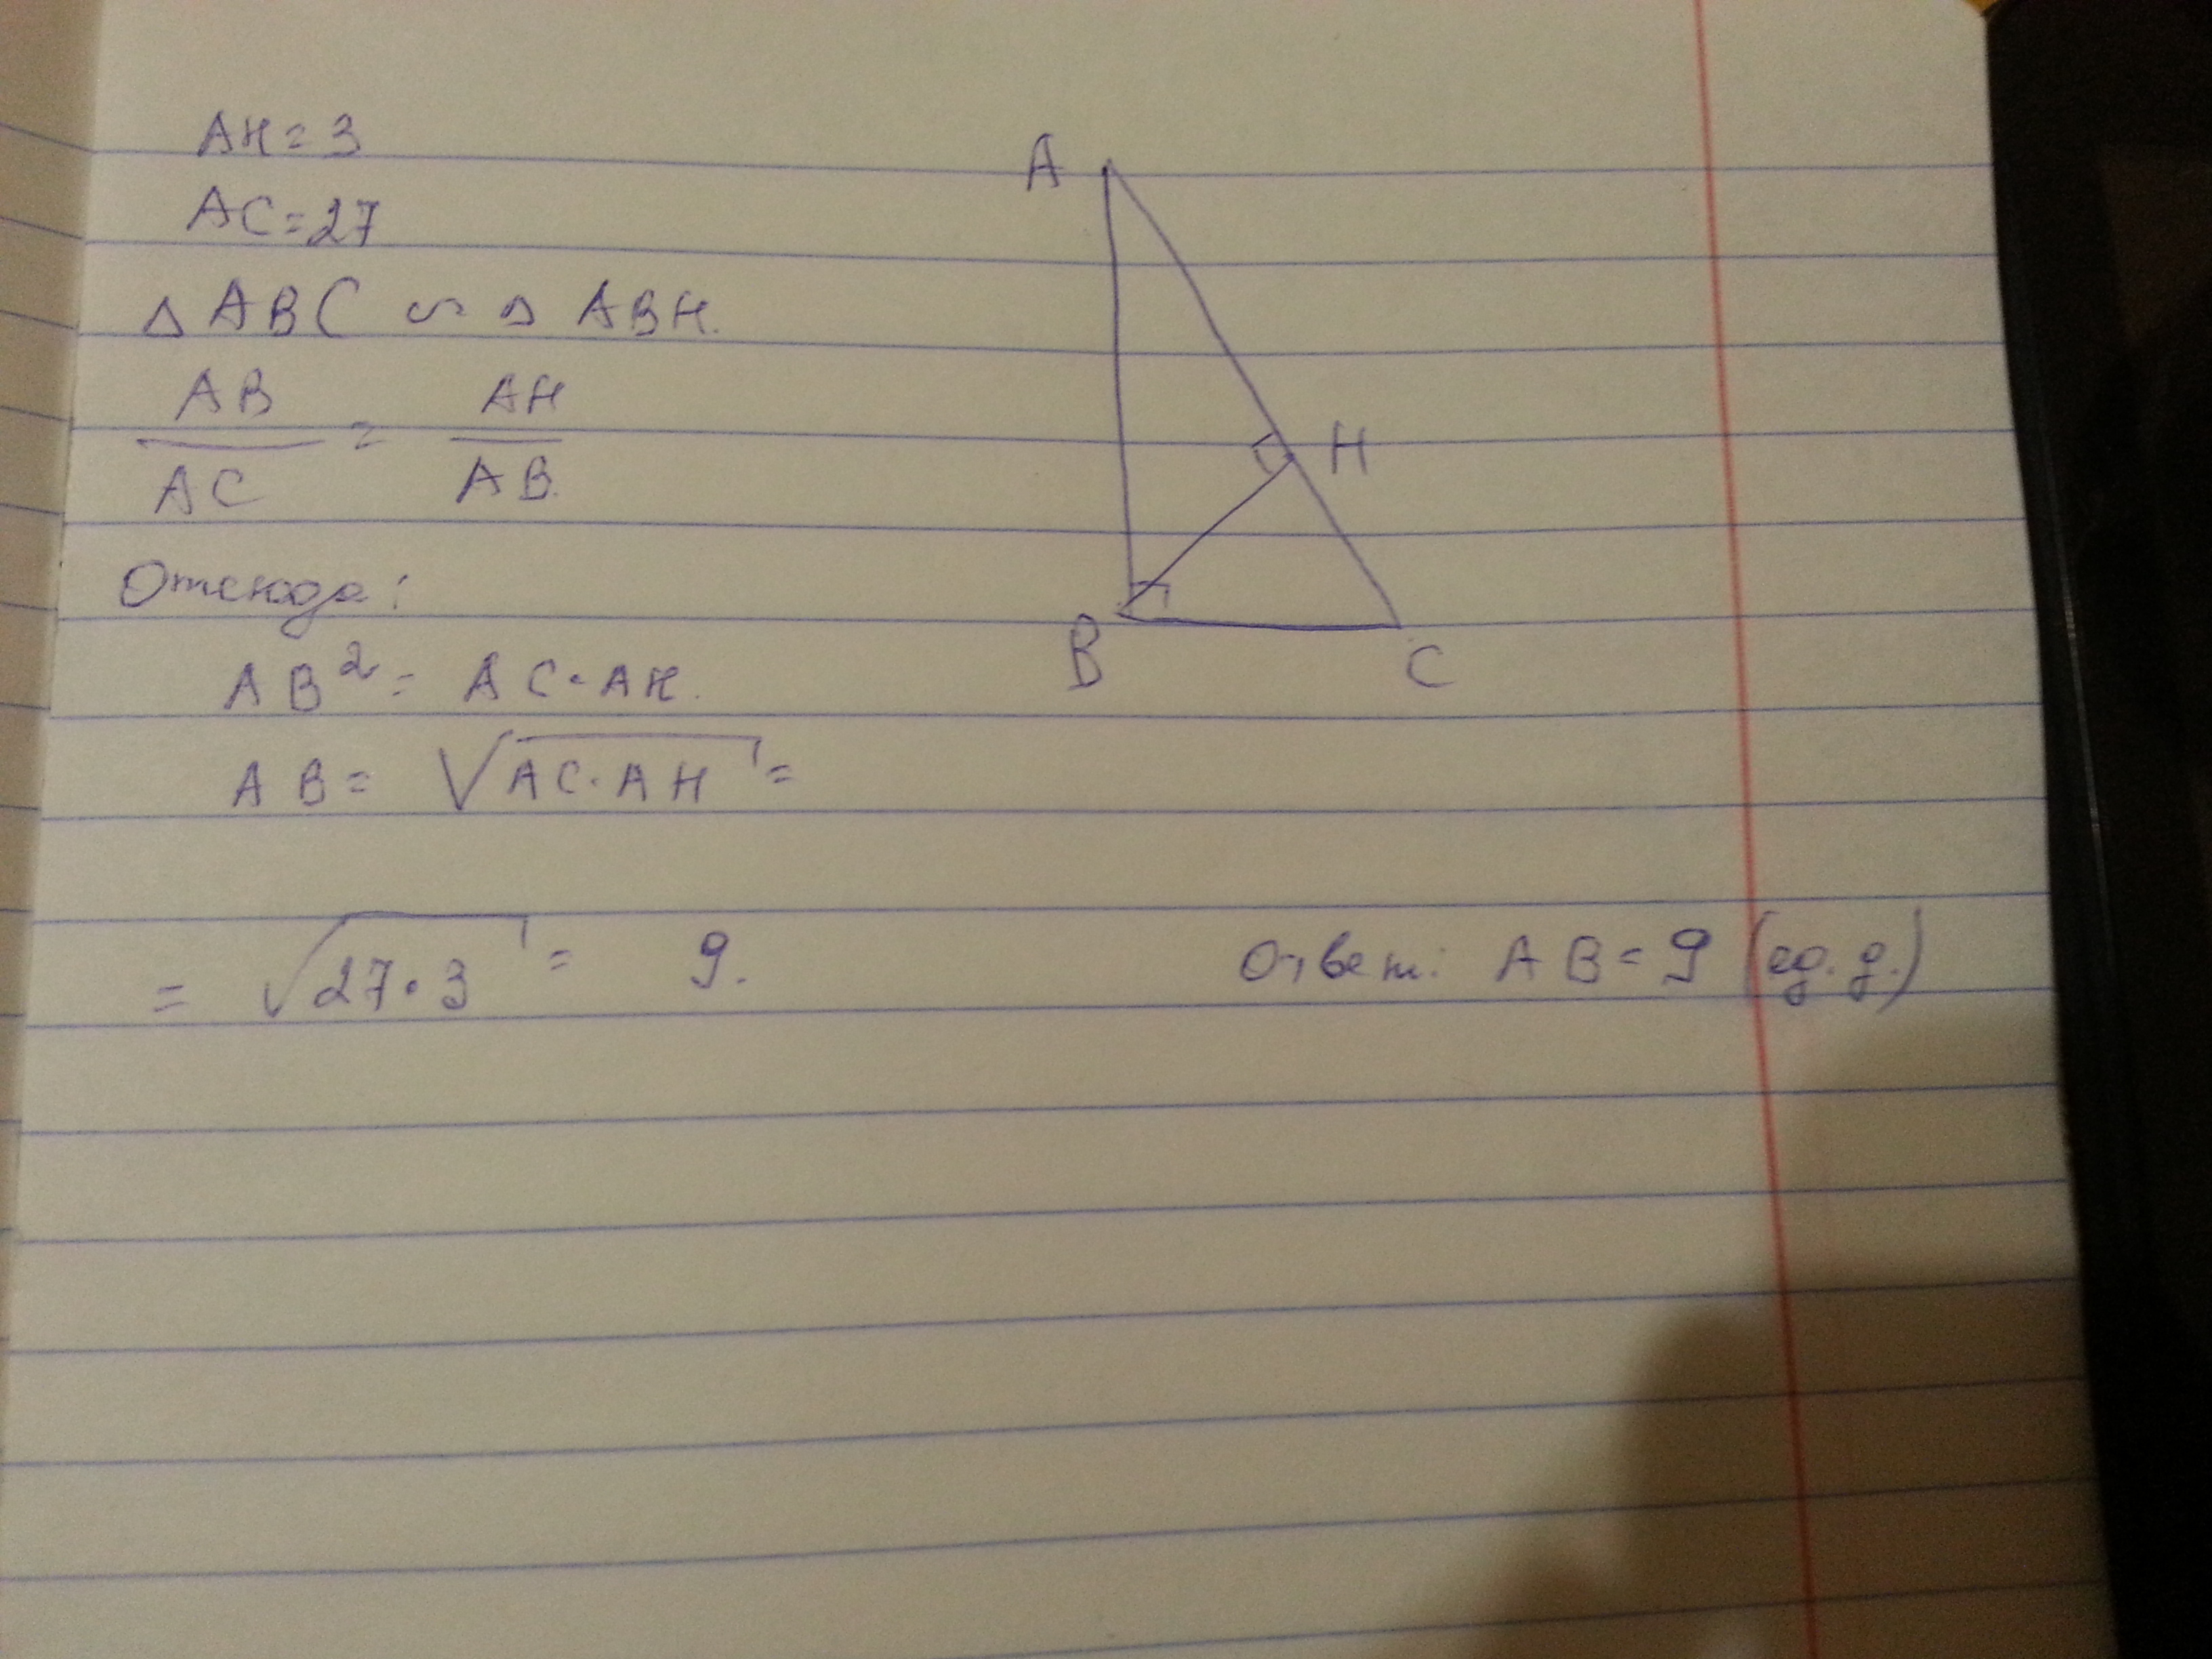 AH = 3
AC = 27
△ ABC ∾ △ ABH.
AB / AC = AH / AB.
Отсюда:
AB² = AC · AH.
AB = √AC · AH =
= √27 · 3 = 9.
Ответ: AB = 9 (ед. д.)
A
H
B
C